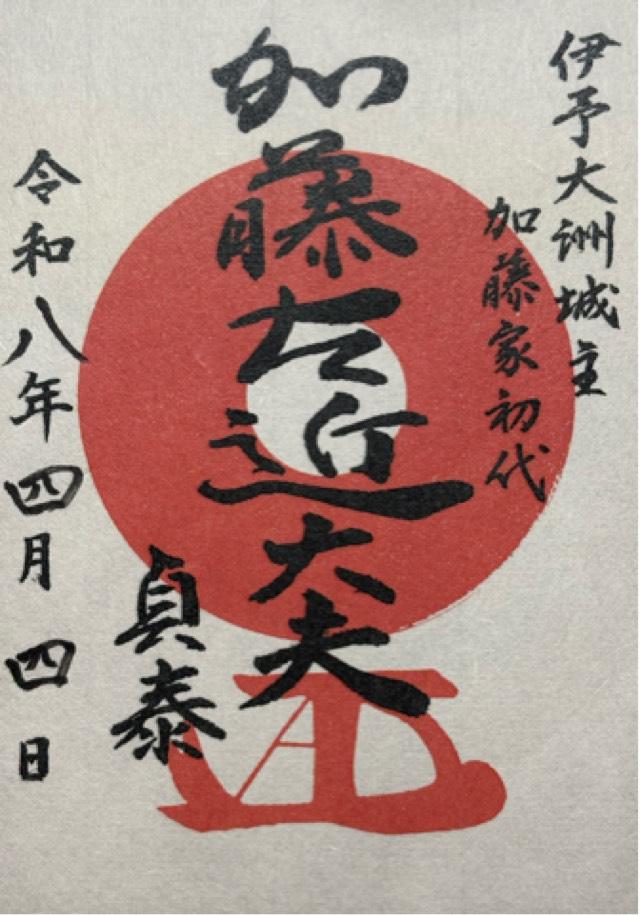 伊予大洲城主
加藤家初代
加藤左近大夫
貞泰
令和八年四月四日